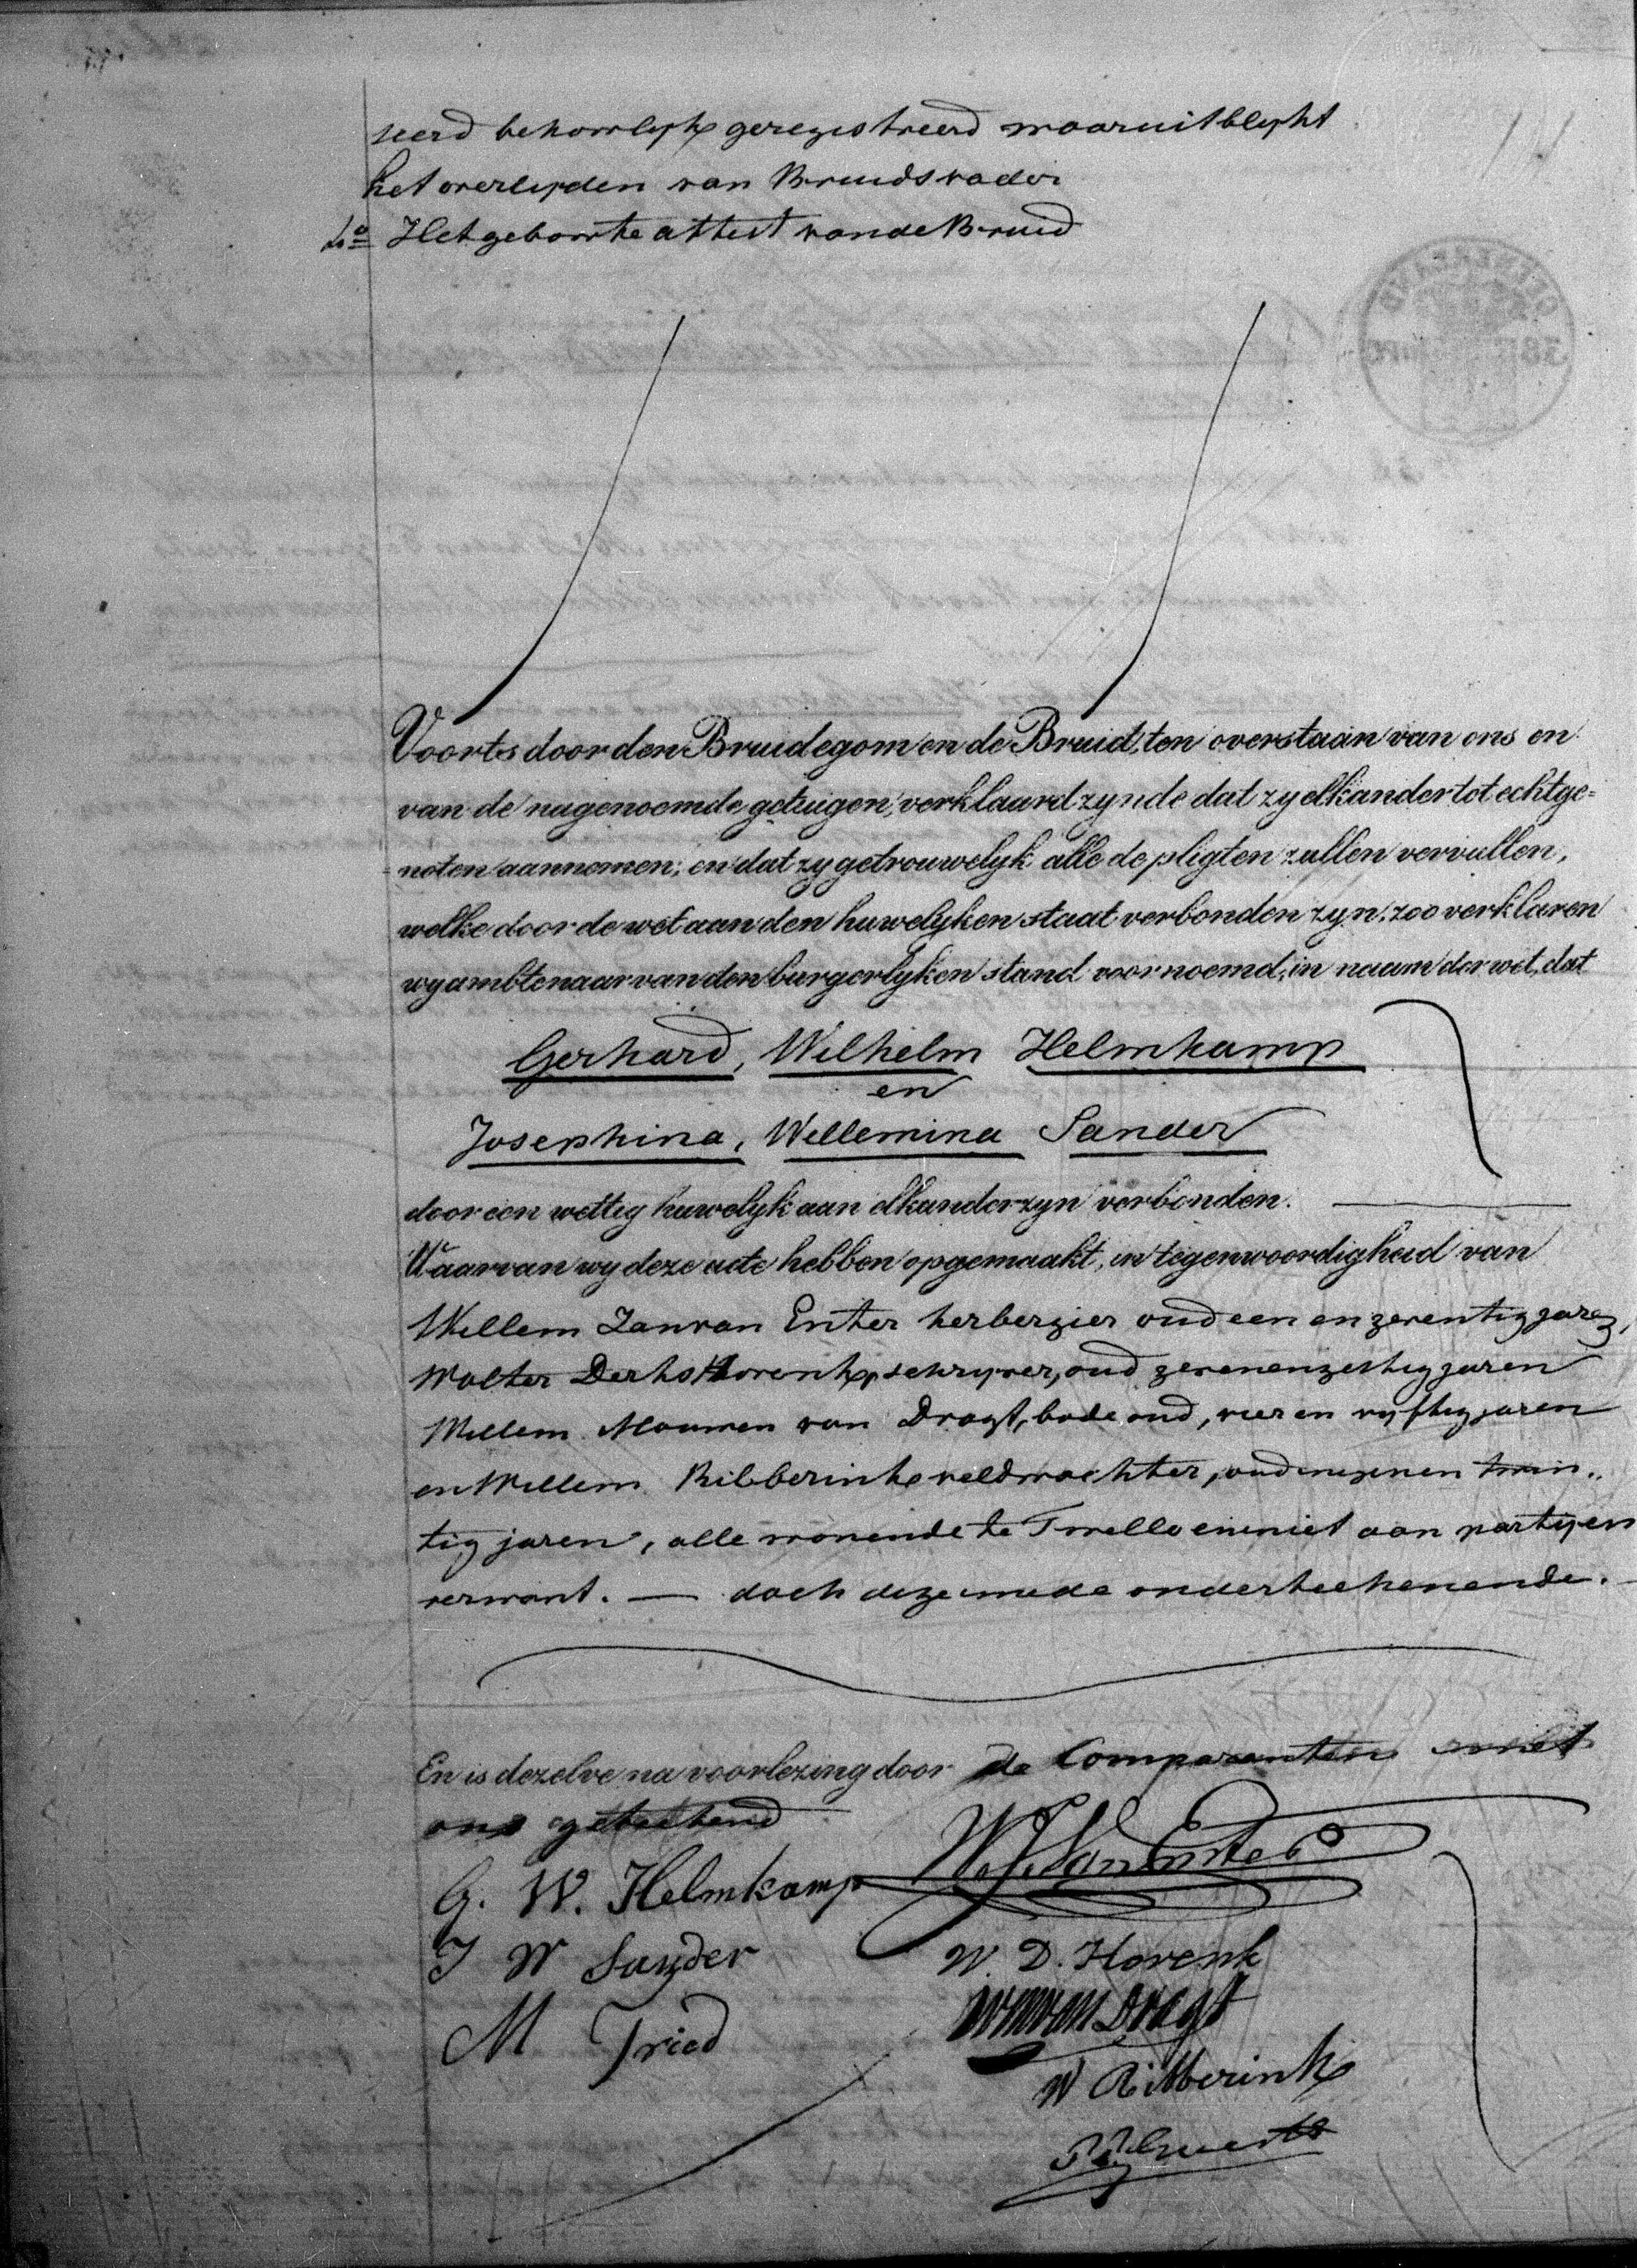 seerd behoorlyk geregistreerd waaruit blykt
het overlyden van Bruidsvader
4o Het geboorte attest van de Bruid
Voorts door den Bruidegom en de Bruid, ten overstaan van ons en
van de nagenoemde getuigen, verklaard zynde dat zy elkander tot echtge=
=noten aannemen; en dat zy getrouwelyk alle de pligten zullen vervullen,
welke door de wet aan den huwelyken staat verbonden zyn, zoo verklaren
wy ambtenaar van den burgerlyken stand voornoemd, in naam der wet, dat
Gerhard, Wilhelm Helmkamp
en
Josephina, Willemina Sander
door een wettig huwelyk aan elkander zyn verbonden.
Waarvan wy deze acte hebben opgemaakt, in tegenwoordigheid van
Willem Jan van Enter herbergier oud een en zeventig jaren,
Wolter Derks Horenk, schryver, oud zeven en zestig jaren
Willem Mouwen van Dragt, bode oud, vier en vyftig jaren
en Willem Ribberink veldwachter, oud negen en twin„
tig jaren, alle wonende te Twello en niet aan partyen
verwant. — doch deze mede onderteekenende.
En is dezelve na voorlezing door de Comparanten met
ons geteekend
G. W. Helmkamp W J van Enter
J W Sander W. D. Horenk
M Fried W M van Dragt
W Ribberink